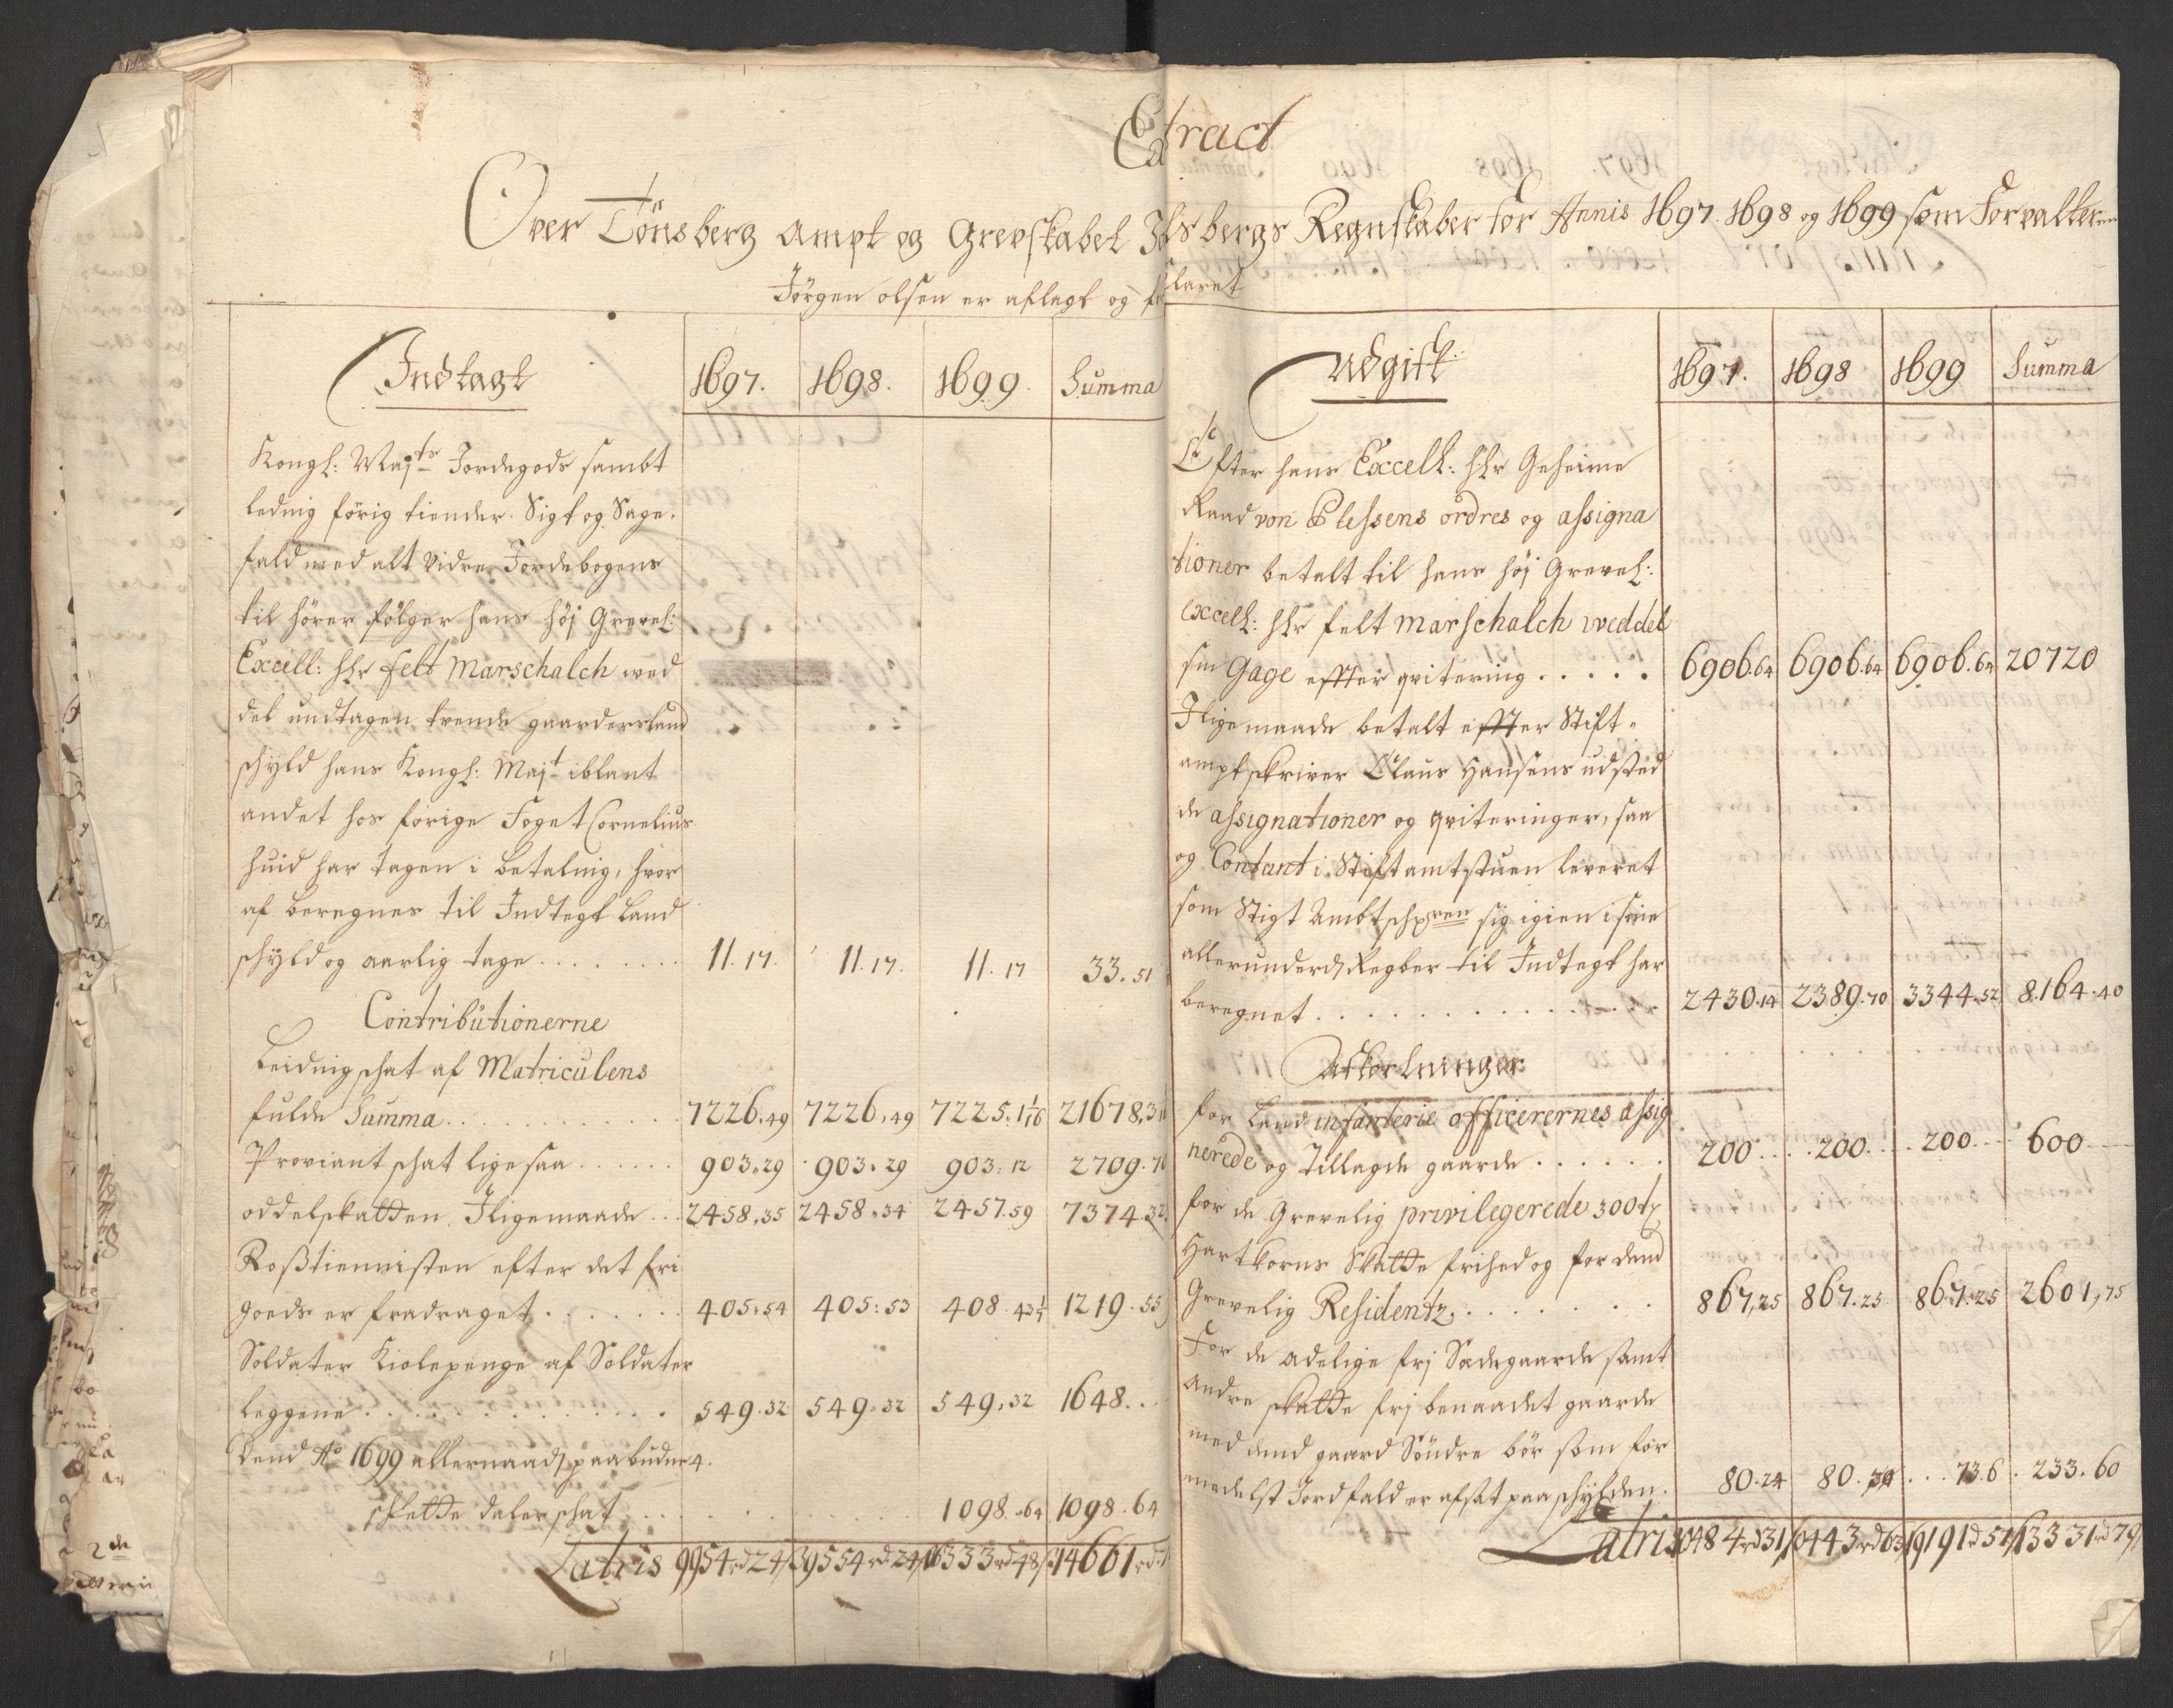 Extract
Over Tönsberg Ampt og Grevskabet Jarlsbergs Regnskaber for Annis 1697. 1698 og 1699 som Forvalteren
Jörgen olsen er aflagt og forklaret
Indtagt 1697. 1698. 1699. Summa
Kongl: Maj:ts Jordegods sambt
leding förig tiender. Sigt og Sage-
fald med alt videre Jordebogens
til hörer fölger hans höj Grevel:
Excell: Hr felt Marschalch wed
del undtagen trende gaarders land
schyld hans Kongl: Majt iblant
andet hos forige Foget Cornelius
huid har tagen i betaling, hvor
af beregnes til Indtegt Land
schyld og aarlig tage . . . . . . . 11. 17. 11. 17. 11. 17 33. 51
Contributionerne
Leding schat af Matriculens
fulde Summa . . . . . . . . . 7226. 49 7226. 49 7225. 1 1/16 21678. 3
Proviant schat lige saa . . . . . 903. 29 903. 29 903. 12 2709. 70
oddelskatten Iligemaade . . . 2458. 35 2458. 34 2457. 59 7374. 32
Roßtiennisten efter det fri
goeds er fradraget . . . . . . 405. 54 405. 53 408. 43 1219. 55
Soldater Kiolepenge af Soldater
leggene . . . . . . . . . . . 549. 32 549. 32 549. 32 1648. . .
Dend Ao 1699 allernaad. paabudne 4.
skette daler schat . . . . . . 1098. 64 1098. 64
Latris 9954 rd 24 9554 rd 24 333 rd 48 14661 rd
Udgift 1697. 1698 1699 Summa
Efter hans Excell: Hr Geheime
Raad von Plessens ordres og assigna
tioner betalt til hans höj Grevel:
excell: Hr felt marschalch weddel
sin Gage effter qvitering . . . . . 6906. 64 6906. 64 6906. 64 20720
Iligemaade betalt effter Stift-
amptskriver Claus Hansens udsted
de assignationer og qviteringer, saa
og Contant i Stiftamtstuen leveret
som Stigt Ambtschrifveren sig igien i sine
allerunderd. Regber til Indtegt har
beregnet . . . . . . . . . . . . . . 2430. 14 2389. 70 3344. 52 8164. 40
Afkortninger
for Land infanterie officerernes assig
nerede og Tillagde gaarde . . . . . . 200 . . . 200 . . . 200 . . . 600
for de Grevelig privilegerede 300 tr
Hartkorns Skatte frihed og for dend
Grevelig Residentz . . . . . . . . 867. 25 867. 25 867. 25 2601. 75
For de adelige frj Sædegaarde samt
andre skatte frj benaadet gaarde
med dend gaard Söndre bör som for
medelst Jordfald er afsat paa schylden . 80. 24 80. 30 . . . 73. 6 . 233. 60
Latris 10484 rd 31 10443 rd 63 191 rd 51 331 rd 79